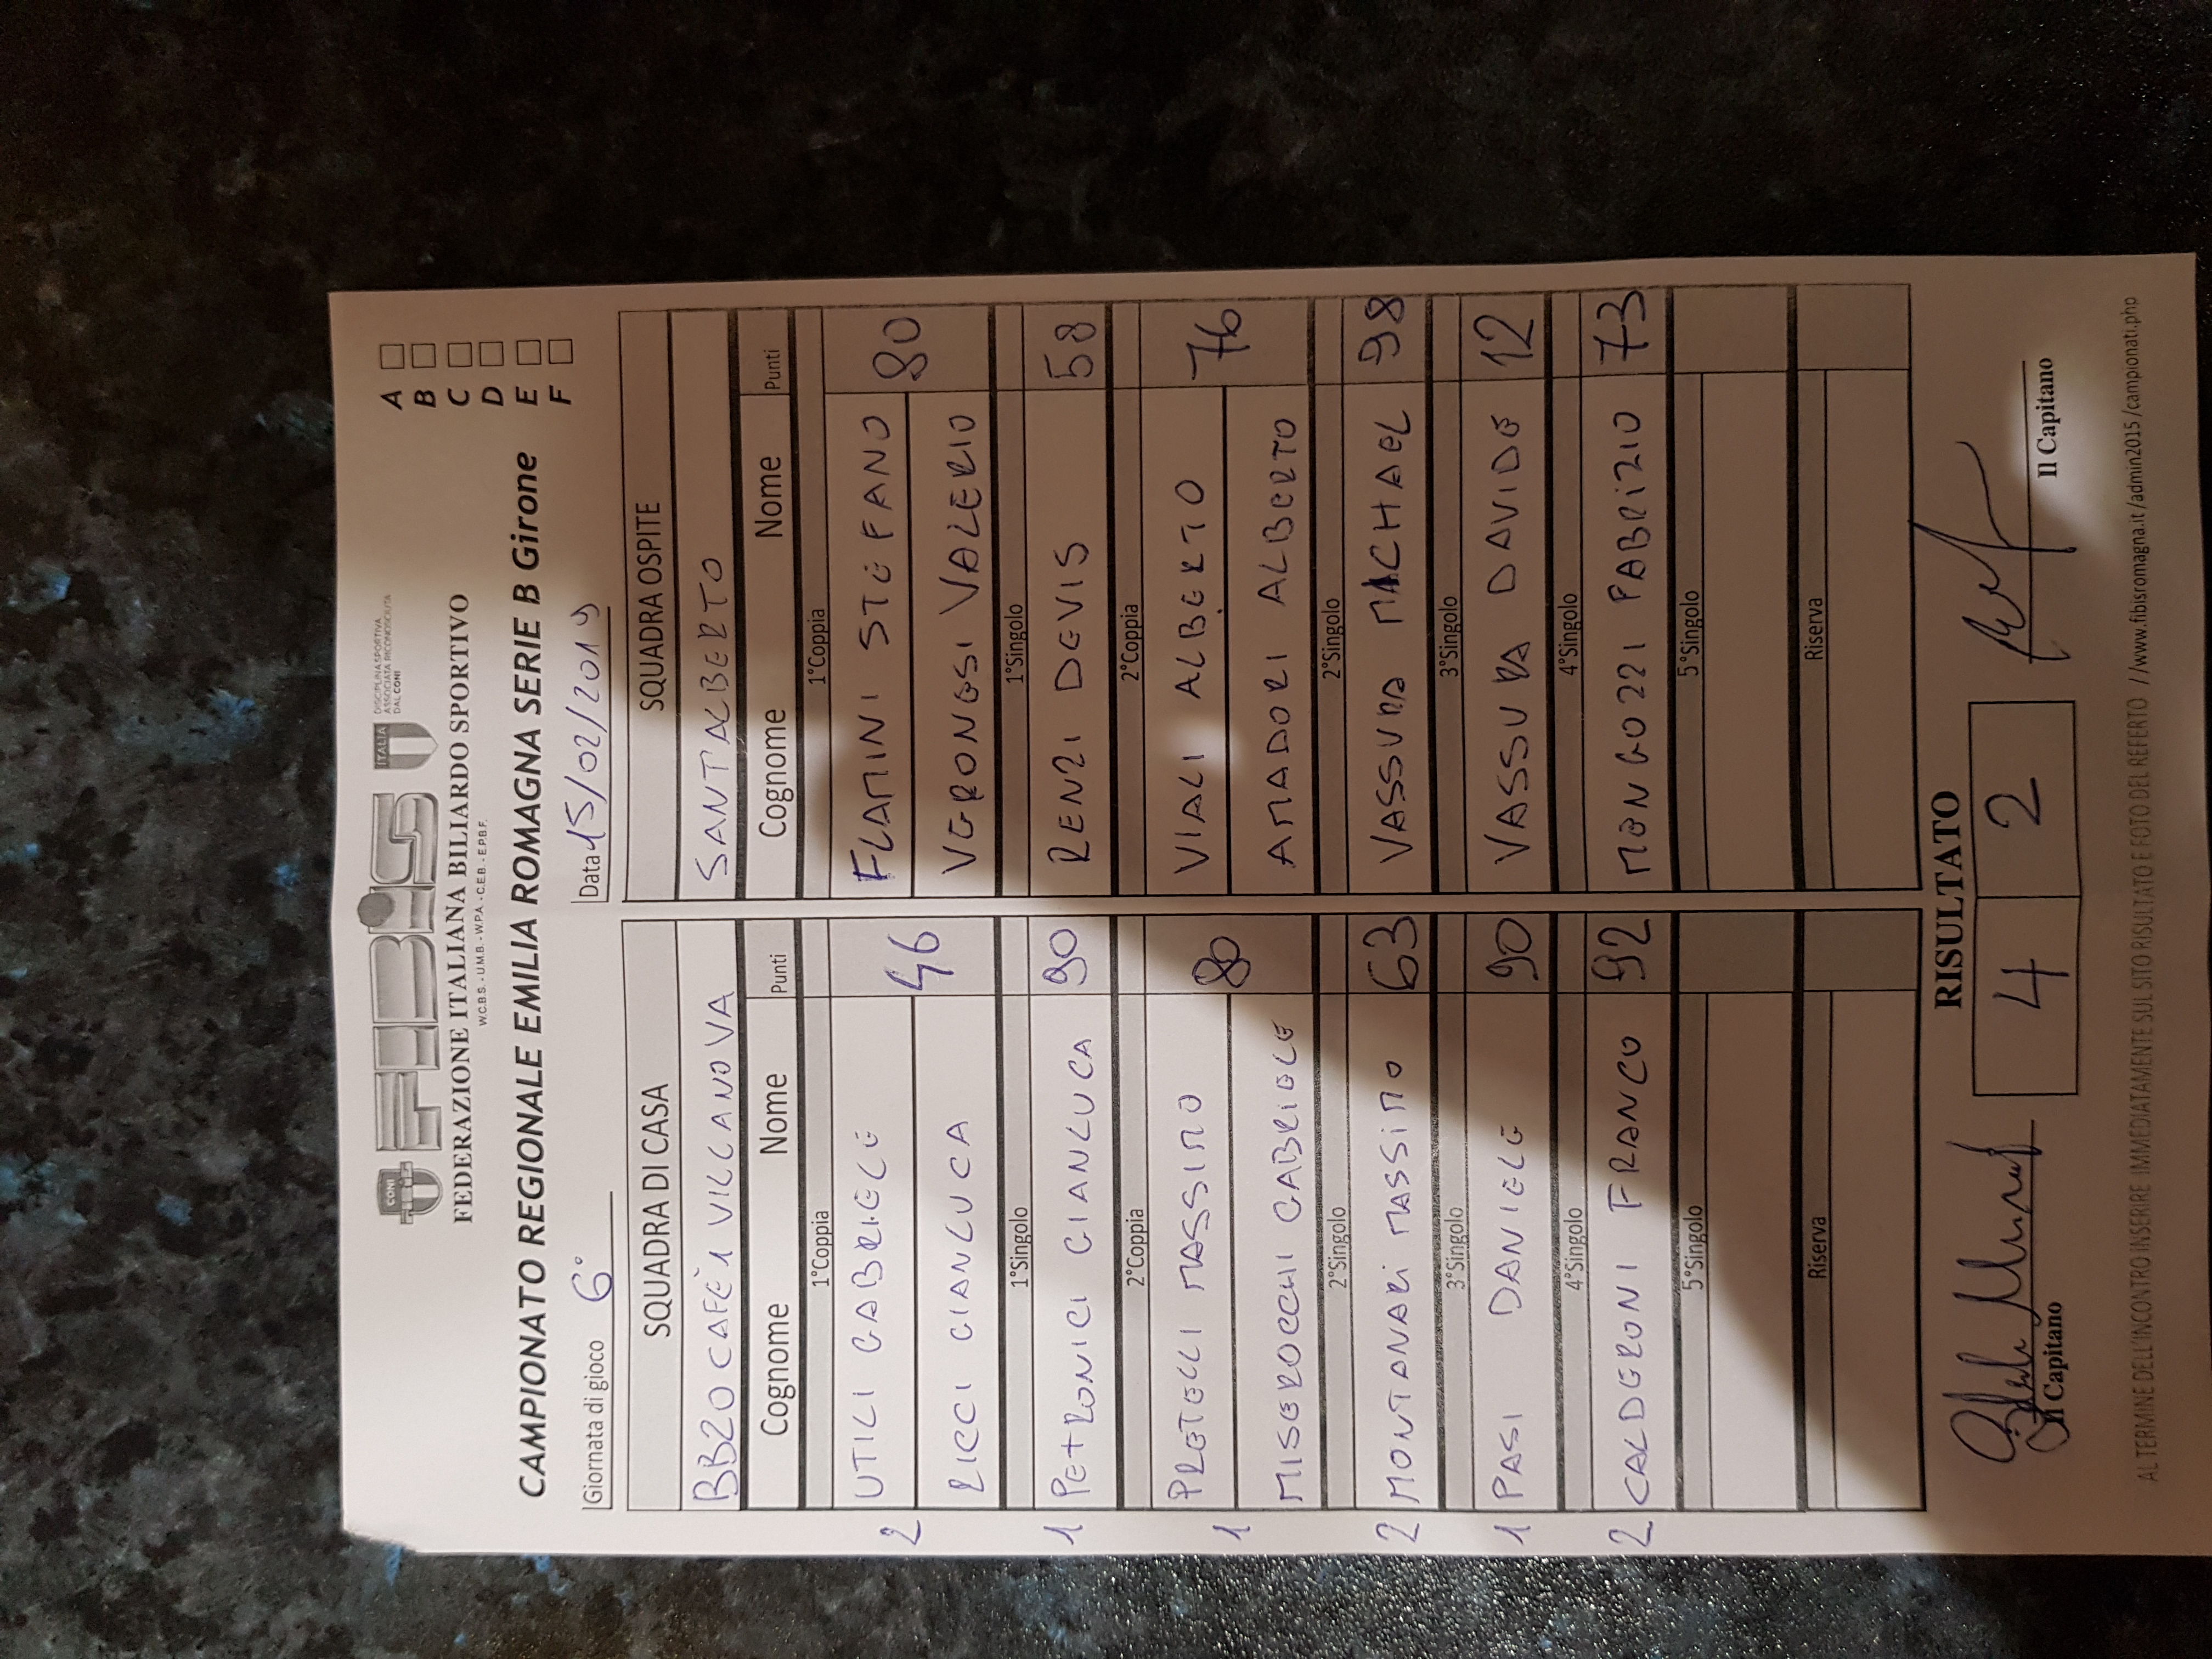 CONI
FIBIS
ITALIA
DISCIPLINA SPORTIVA
ASSOCIATA RICONOSCIUTA
DAL CONI
FEDERAZIONE ITALIANA BILIARDO SPORTIVO
W.C.B.S. - U.M.B. - W.P.A. - C.E.B. - E.P.B.F.
CAMPIONATO REGIONALE EMILIA ROMAGNA SERIE B Girone
A
B
C
D
E
F
Giornata di gioco 6°
Data 15/02/2019
SQUADRA DI CASA
BB20 CAFÈ 1 VILLANOVA
Cognome Nome Punti
1°Coppia
2 UTILI GABRIELE 46
RICCI GIANLUCA
1°Singolo
1 PETRONICI GIANLUCA 90
2°Coppia
1 PRETELLI MASSIMO 80
MISEROCCHI GABRIELE
2°Singolo
2 MONTANARI MASSIMO 63
3°Singolo
1 PASI DANIELE 90
4°Singolo
2 CALDERONI FRANCO 92
5°Singolo
Riserva
SQUADRA OSPITE
SANTALBERTO
Cognome Nome Punti
1°Coppia
FLAMINI STEFANO 80
VERONESI VALERIO
1°Singolo
RENZI DEVIS 58
2°Coppia
VIALI ALBERTO 76
AMADORI ALBERTO
2°Singolo
VASSURA MICHAEL 98
3°Singolo
VASSURA DAVIDE 12
4°Singolo
MENGOZZI FABRIZIO 73
5°Singolo
Riserva
RISULTATO
4 2
Il Capitano
Il Capitano
AL TERMINE DELL'INCONTRO INSERIRE IMMEDIATAMENTE SUL SITO RISULTATO E FOTO DEL REFERTO //www.fibisromagna.it/admin2015/campionati.php